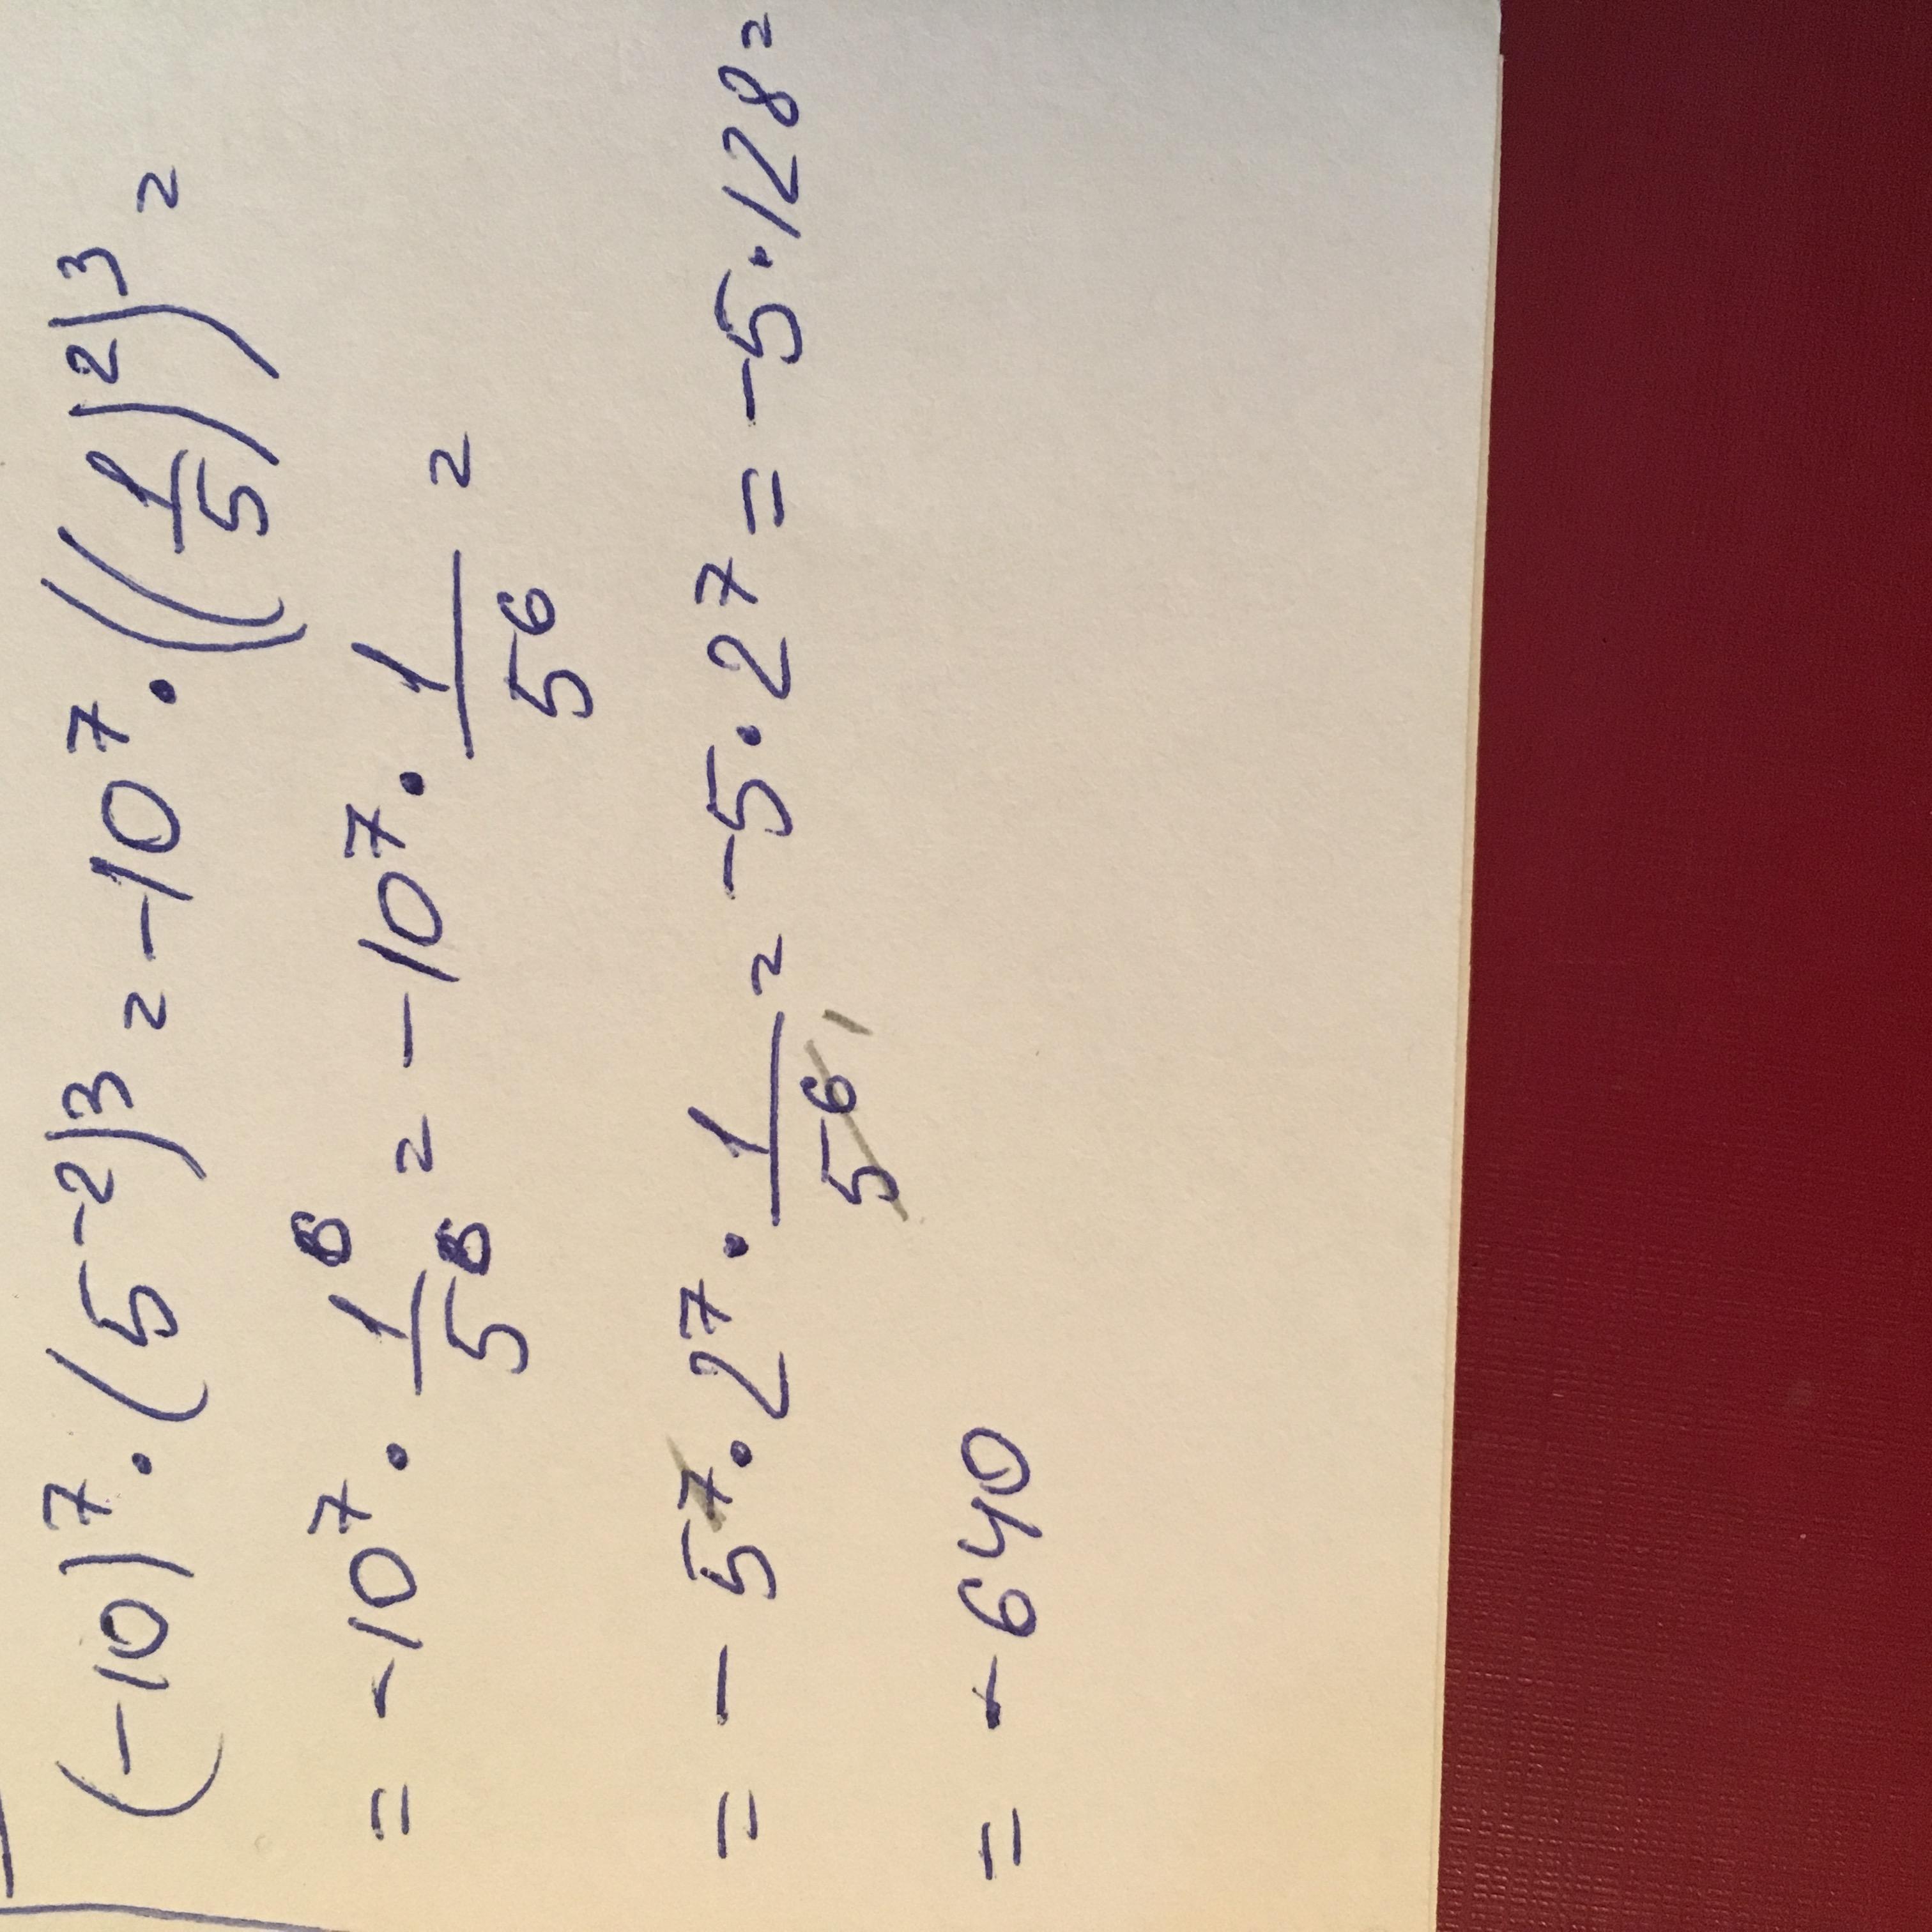 (-10)⁷ · (5⁻²)³ = -10⁷ · ((1/5)²)³ =
= -10⁷ · 1⁶/5⁶ = -10⁷ · 1/5⁶ =
= - 5⁷ · 2⁷ · 1/5⁶ = -5 · 2⁷ = -5 · 128 =
= -640